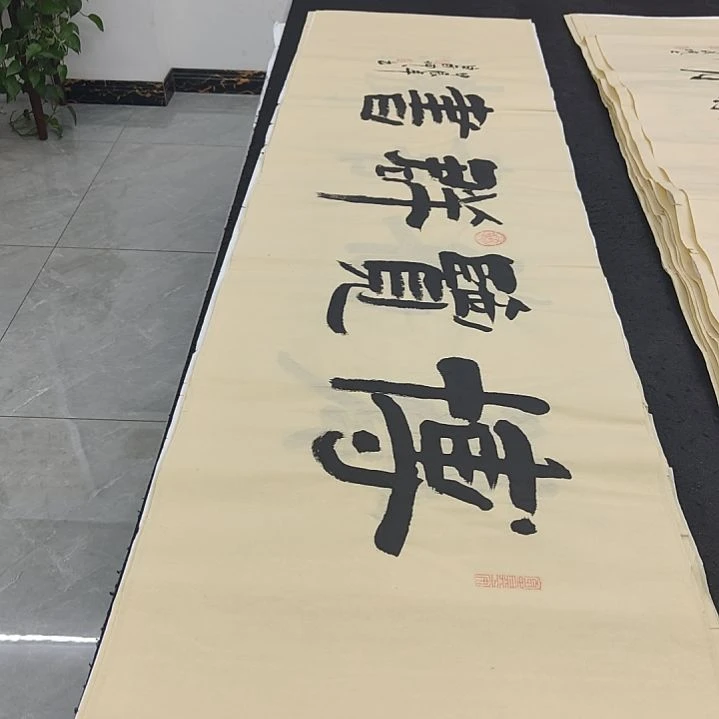 博覽群書